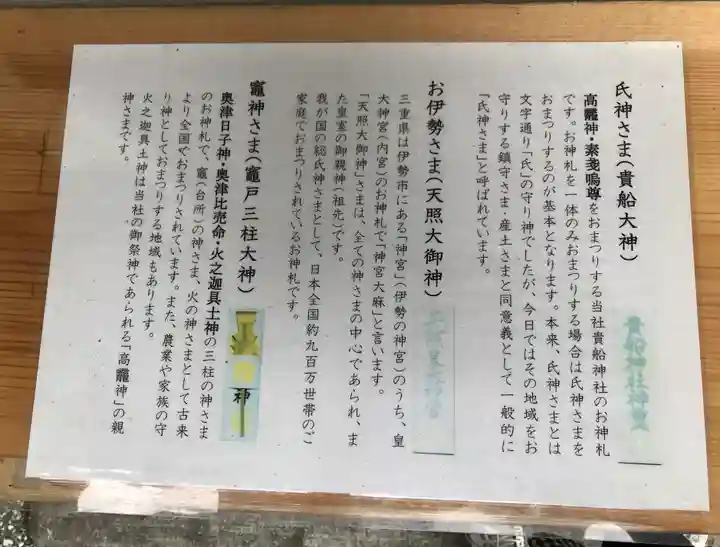 氏神さま(貴船大神)
高龗神・素戔嗚尊をおまつりする当社貴船神社のお神札
です。お神札を一体のみおまつりする場合は氏神さまを
おまつりするのが基本となります。本来、氏神さまとは
文字通り「氏」の守り神でしたが、今日ではその地域をお
守りする鎮守さま・産土さまと同意義として一般的に
「氏神さま」と呼ばれています。
貴船神社神璽
お伊勢さま(天照大御神)
三重県は伊勢市にある「神宮」(伊勢の神宮)のうち、皇
大神宮(内宮)のお神札で「神宮大麻」と言います。
「天照大御神」さまは、全ての神さまの中心であられ、ま
た皇室の御親神(祖先)です。
我が国の総氏神さまとして、日本全国約九百万世帯のご
家庭でおまつりされているお神札です。
竈神さま(竈戸三柱大神)
奥津日子神・奥津比売命・火之迦具土神の三柱の神さま
のお神札で、竈(台所)の神さま、火の神さまとして古来
より全国でおまつりされています。また、農業や家族の守
り神としておまつりする地域もあります。
火之迦具土神は当社の御祭神であられる「高龗神」の親
神さまです。
神